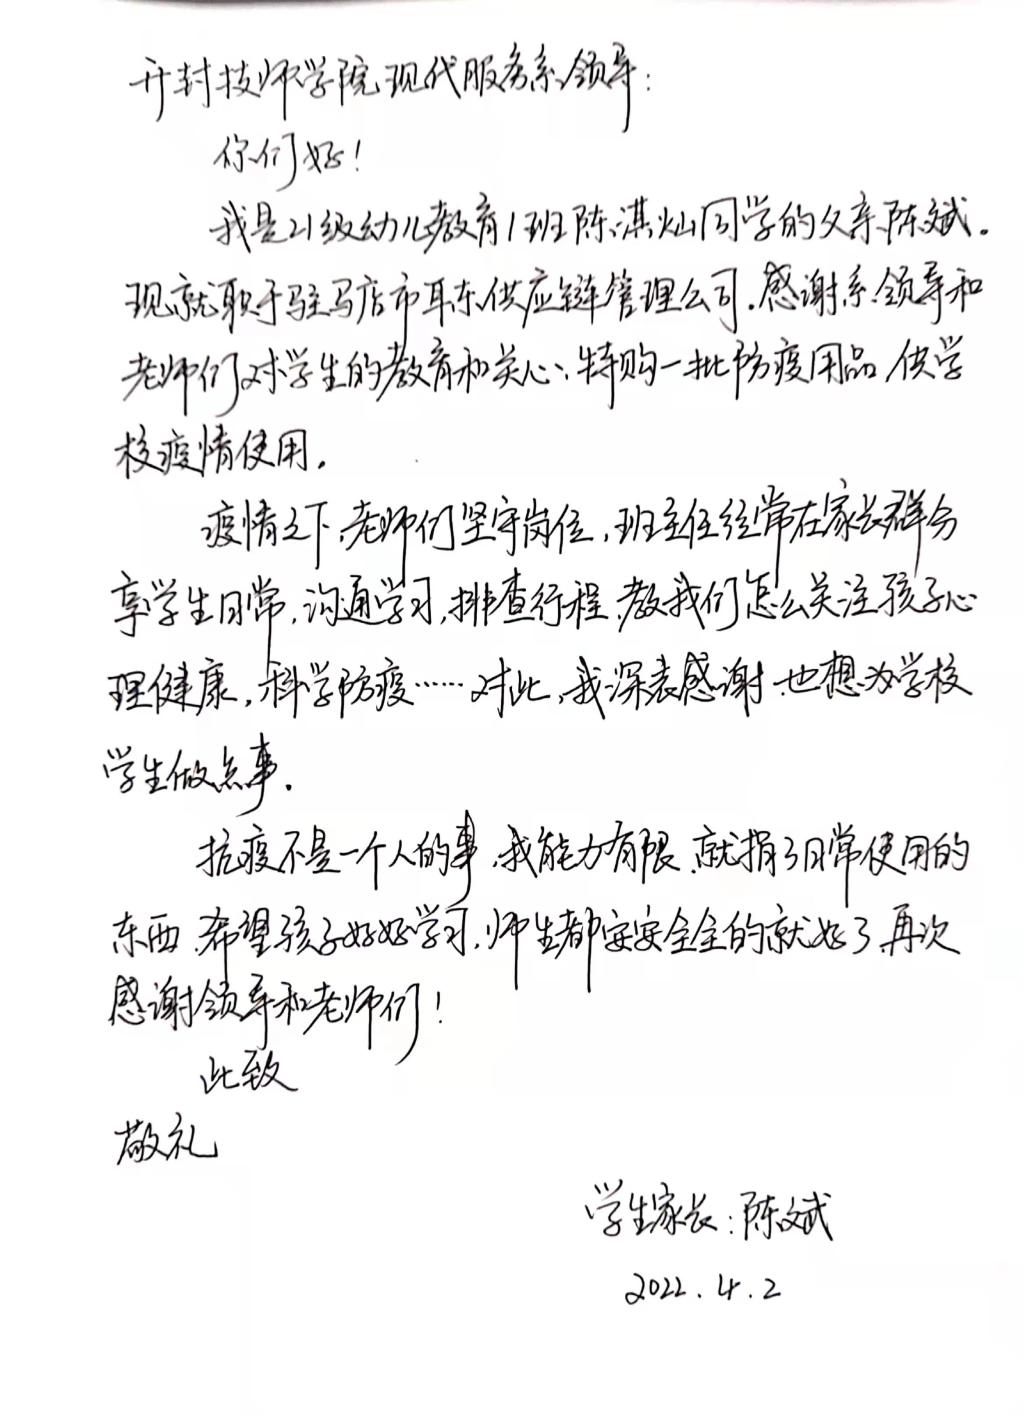 开封技师学院现代服务系领导：
你们好！
我是21级幼儿教育1班陈淇灿同学的父亲陈斌。
现就职于驻马店市耳东供应链管理公司.感谢系领导和
老师们对学生的教育和关心、特购一批防疫用品,供学
校疫情使用。
疫情之下,老师们坚守岗位,班主任经常在家长群分
享学生日常,沟通学习,排查行程,教我们怎么关注孩子心
理健康,科学防疫……对此,我深表感谢、也想为学校
学生做点事。
抗疫不是一个人的事,我能力有限、就捐了日常使用的
东西、希望孩子好好学习,师生都安安全全的就好了、再次
感谢领导和老师们！
此致
敬礼
学生家长:陈斌
2022.4.2